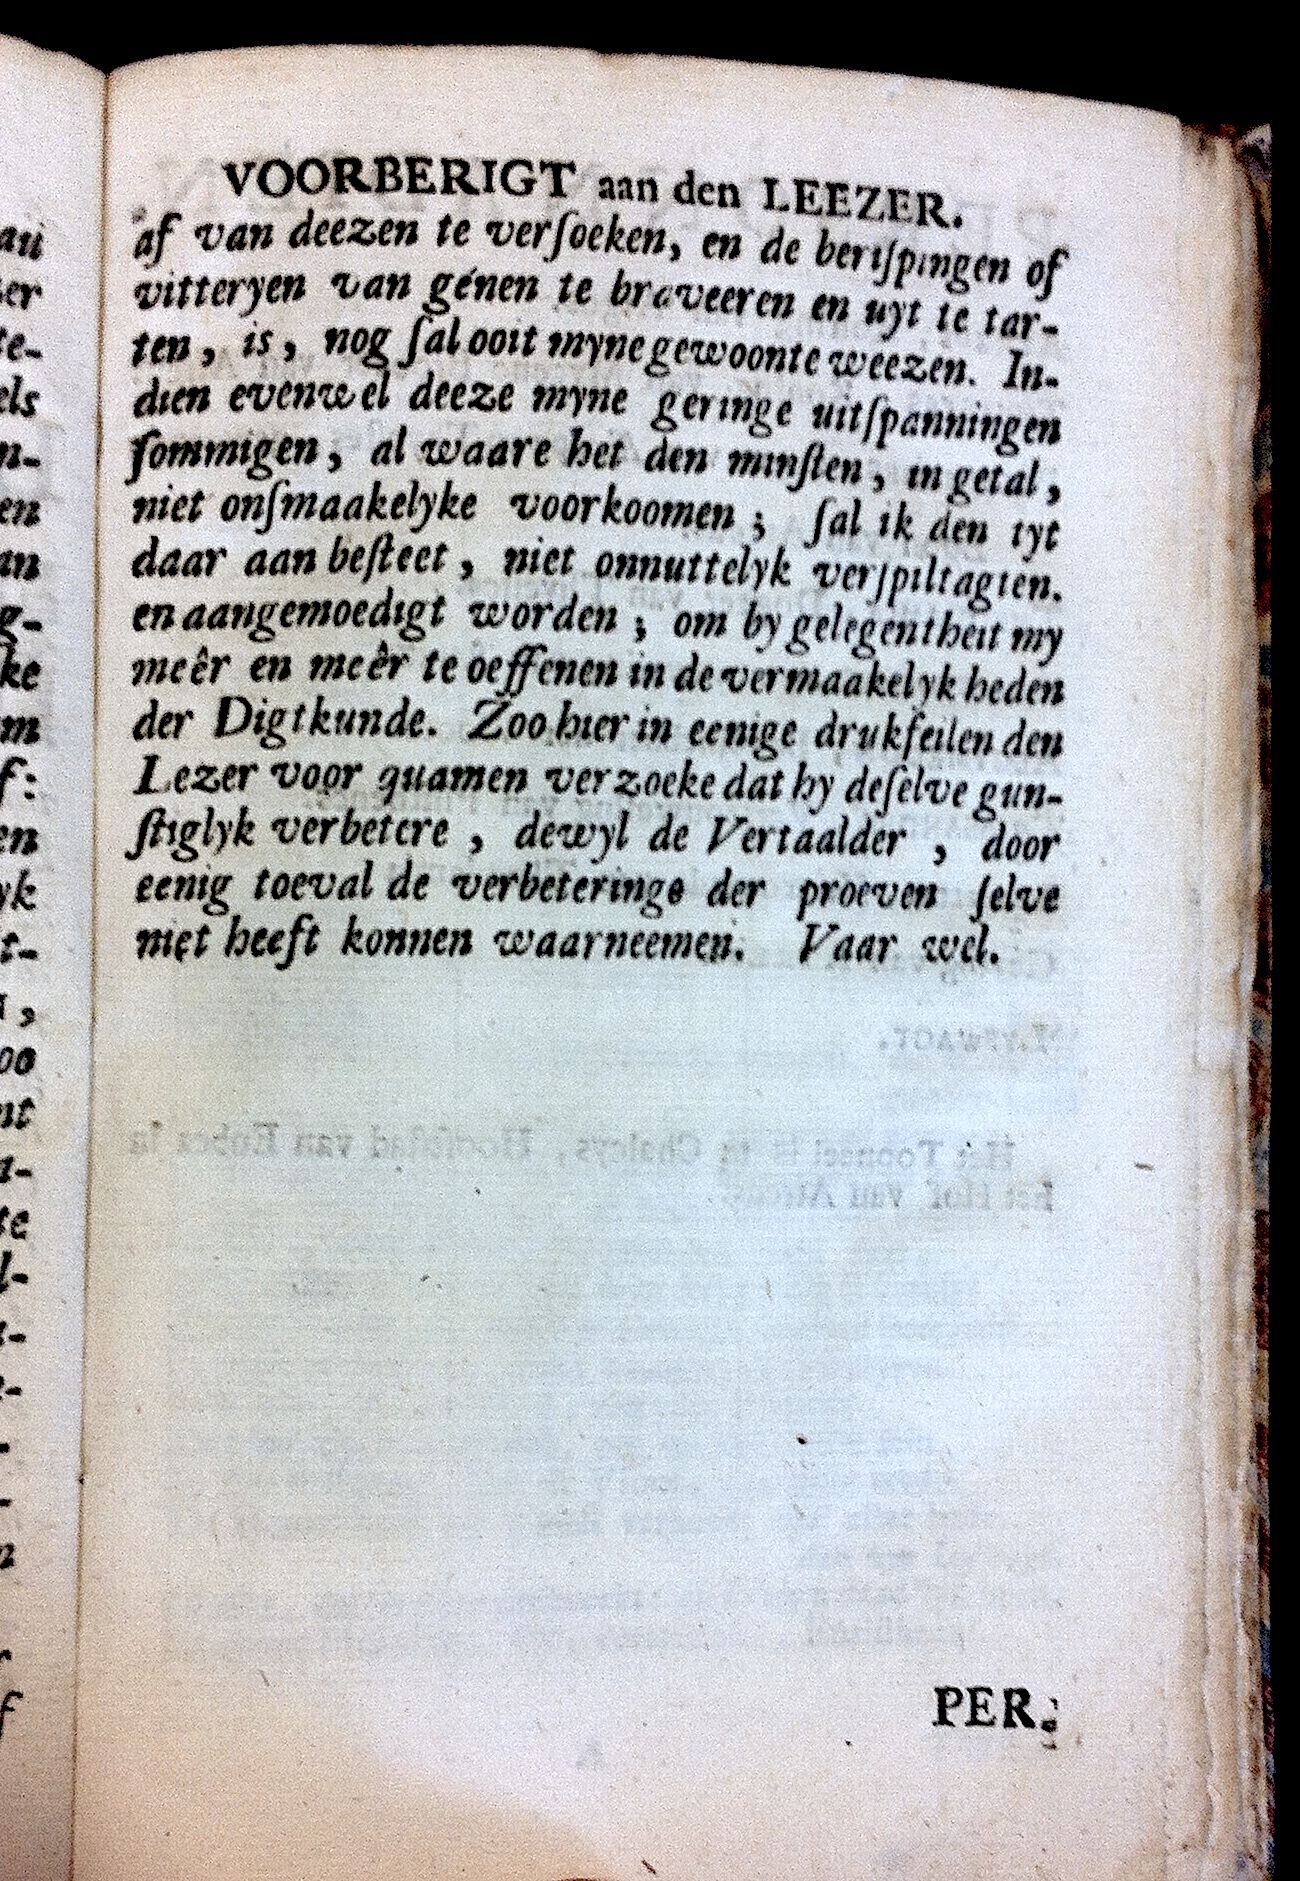 VOORBERIGT aan den LEEZER.
af van deezen te verſoeken, en de beriſpingen of
vitteryen van génen te braveeren en uyt te tar-
ten, is, nog ſal ooit myne gewoonte weezen. In-
dien evenwel deeze myne geringe uitſpanningen
ſommigen, al waare het den minſten, in getal,
niet onſmaakelyke voorkoomen; ſal ik den tyt
daar aan beſteet, niet onnuttelyk verſpilt agten.
en aangemoedigt worden; om by gelegentheit my
meêr en meêr te oeffenen in de vermaakelykheden
der Digtkunde. Zoo hier in eenige drukfeilen den
Lezer voor quamen verzoeke dat hy deſelve gun-
ſtiglyk verbetere, dewyl de Vertaalder, door
eenig toeval de verbeteringe der proeven ſelve
niet heeft konnen waarneemen. Vaar wel.
PER.